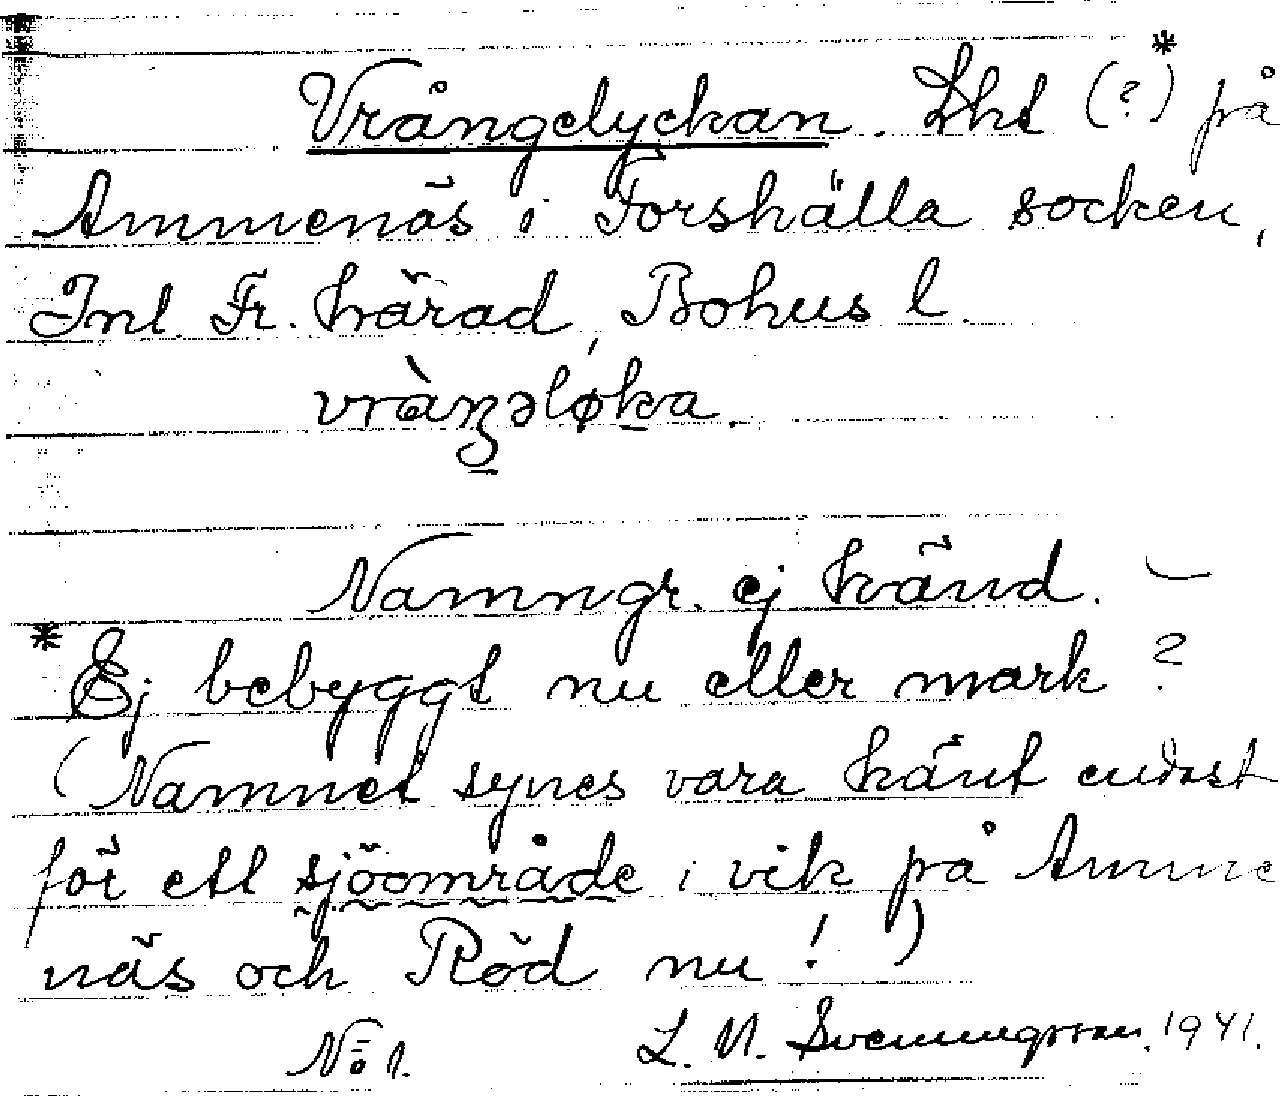 Vrångelyckan. Lht (?)* på
Ammenäs i Forshälla socken,
Inl. Fr. härad, Bohus l.
vràŋəløka.
Namngr. ej känd. –
* Ej bebyggt nu eller mark?
(Namnet synes vara känt endast
för ett sjöområde i vik på Amme
näs och Röd nu!)
No 1. L. N. Svenungsson. 1941.